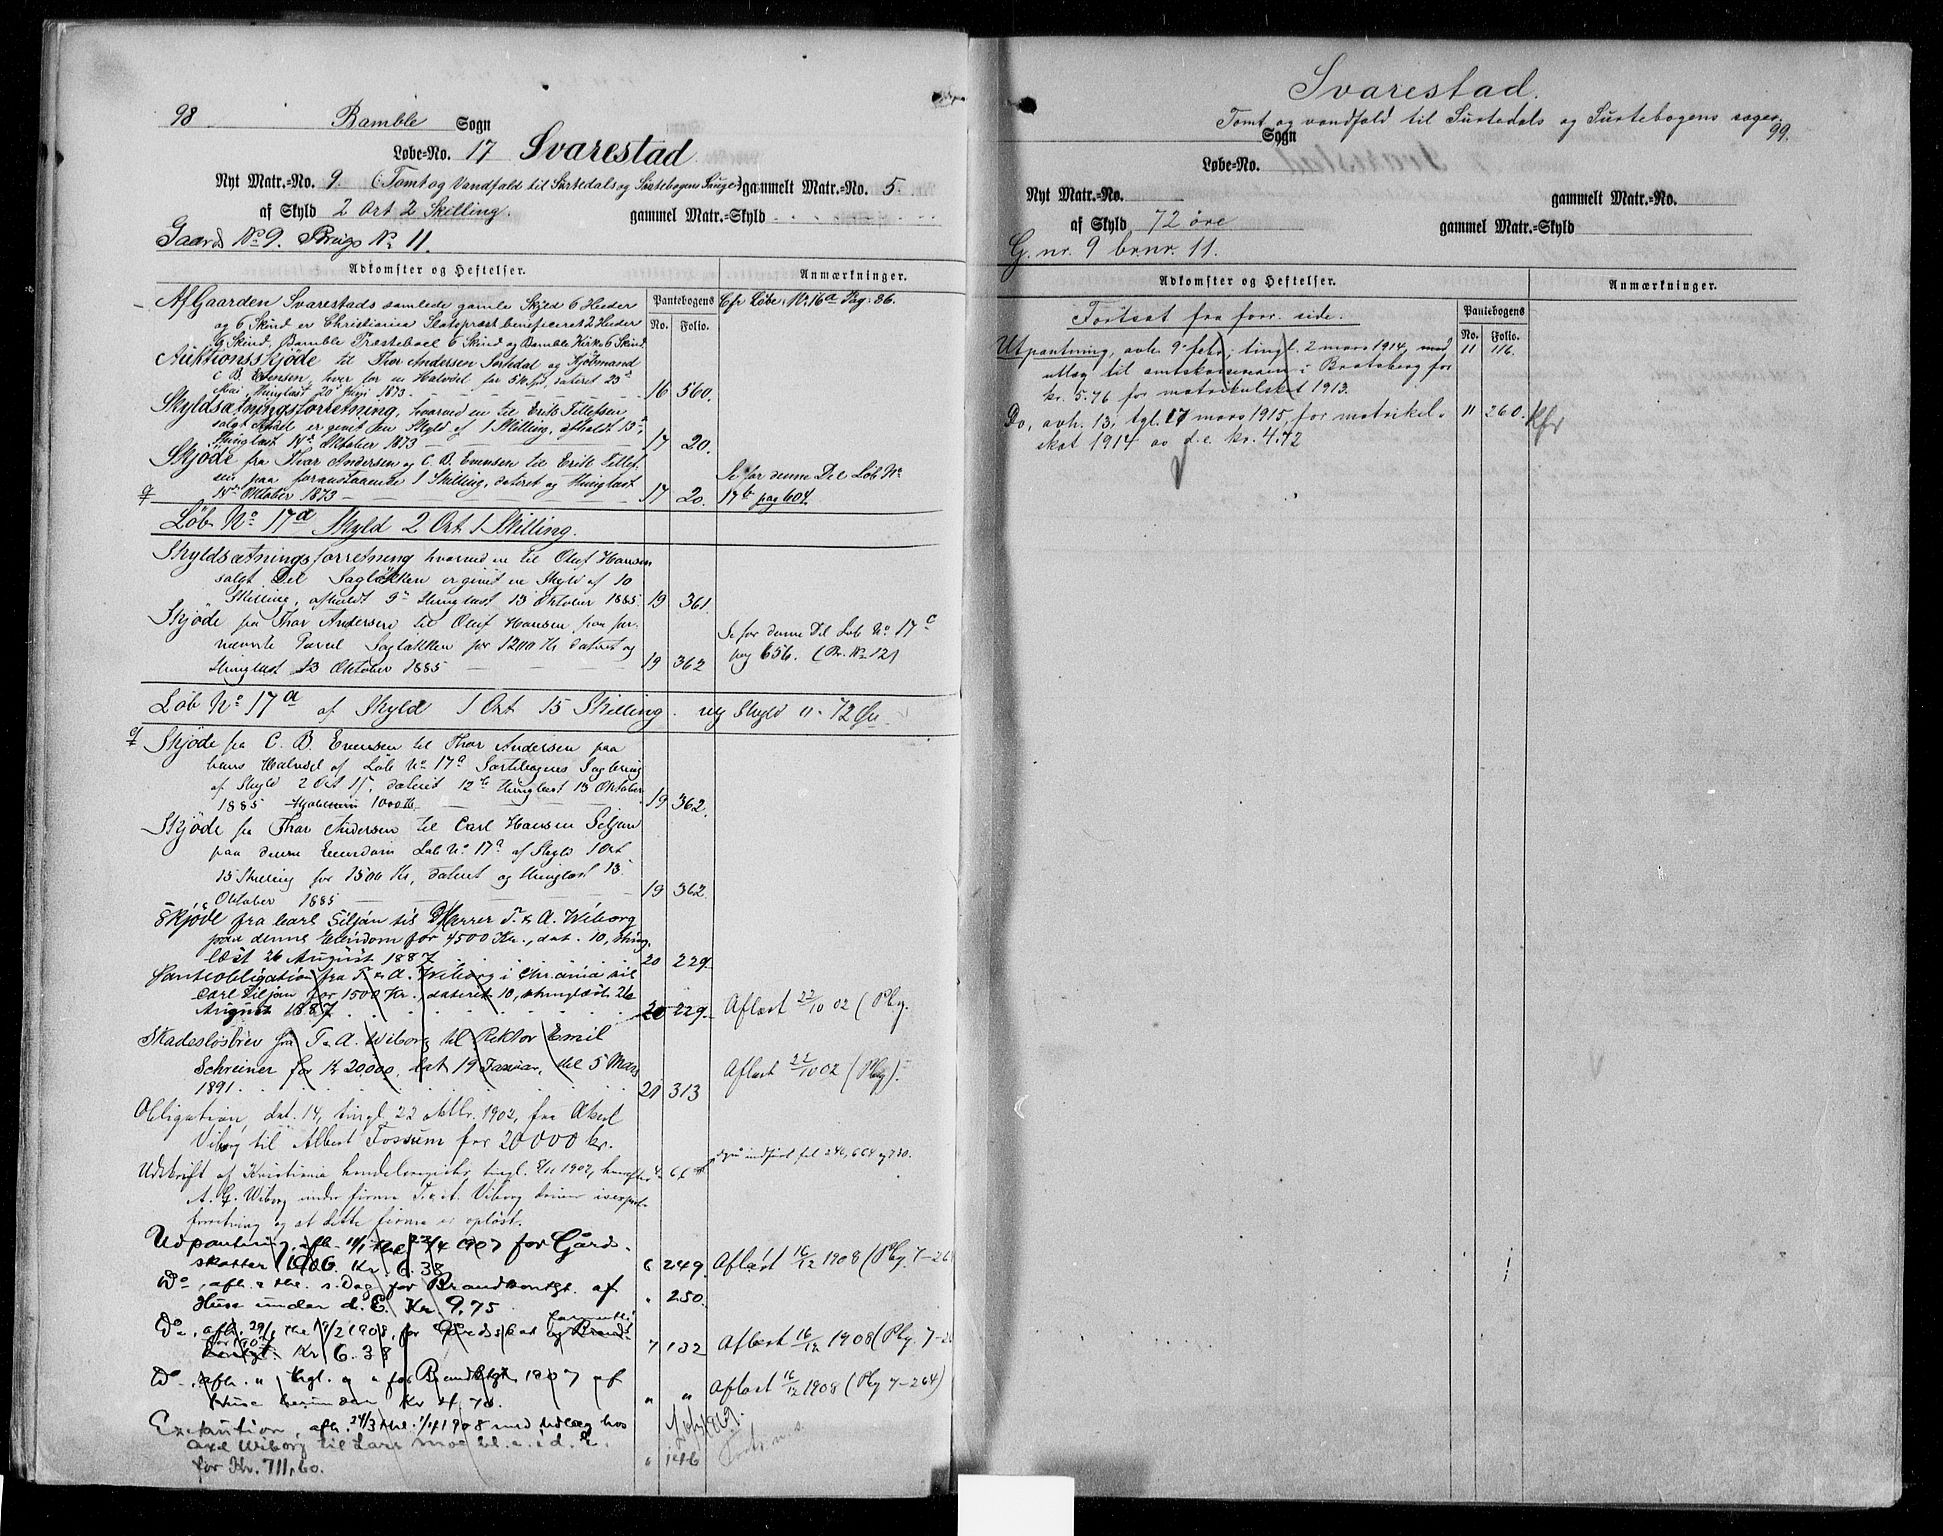 98 Bamble Sogn
Løbe-No. 17 Svarestad
Nyt Matr.-No. 9. (Tomt og Vandfald til Surtedals og Surtebogens Sauge) gammelt Matr.-No. 5.
af Skyld 2 Ort 2 Skilling. gammel Matr.-Skyld
Gaards No 9. Brugs No 11.
Adkomster og Heftelser. Anmærkninger.
Pantebogens
No. Folio.
Af Gaarden Svarestads samlede gamle Skyld 6 Huder Cfr Løbe No 16a Pag. 86.
og 6 Skind er Christiania Slotspræst beneficeret 2 Huder
6 Skind, Bamble Præstebol 6 Skind og Bamble Kirke 6 Skind
Auktionsskjøde til Thor Andersen Surtedal og Kjøbmand
C. B. Evensen, hver for en Halvdel for dateret 23de
Mai, thinglæst 20de Juni 1873 16 560.
Skyldsætningsforretning, hvorved en til Erik Tellefsen
solgt Andel er givet en Skyld af 1 Skilling, afholdt 13de,
thinglæst 14de Oktober 1873 17 20.
Skjøde fra Thor Andersen og C. B. Evensen til Erik Tellef-
sen paa foranstaaende 1 Skilling, dateret og thinglæst Se for denne Del Løb No
14de Oktober 1873 17 20. 17b pag 604.
Løb No 17a Skyld 2 Ort 1 Skilling.
Skyldsætningsforretning hvorved en til Oluf Hansen
solgt Del Sagløkken er givet en Skyld af 10
Skilling, afholdt 9de thinglæst 13 Oktober 1885 19 361
Skjøde fra Thor Andersen til Oluf Hansen paa for-
nævnte Parcel Sagløkken for 1200 Kr dateret og Se for denne Del Løb No 17c
thinglæst 13 Oktober 1885 19 362 pag 656. (Br. No 12)
Løb No 17a af Skyld 1 Ort 15 Skilling. ny Skyld 72 Øre.
Skjøde fra C. B. Evensen til Thor Andersen paa
hans Halvdel af Løb No 17a Surtebogens Sagbrug
af Skyld 2 Ort dateret 12te thinglæst 13 Oktober
1885 1000 Kr 19 362.
Skjøde fra Thor Andersen til Carl Hansen Siljan
paa denne Eiendom Løb No 17a af Skyld 1 Ort
15 Skilling for 1500 Kr, dateret og thinglæst 13
Oktober 1885 19 362
Skjøde fra Carl Siljan til DHerrer T. & A. Wiborg
paa denne Eiendom for 4500 Kr., dat. 10, thing-
læst 26 August 1887 20 229.
Panteobligation fra T. & A. Wiborg i Chr.ania til
Carl Siljan for 1500 Kr. dateret 10, thinglæst 26
August 1887. 20 229. Aflæst 22/10 02 (Pbg.
Skadesløsbrev fra T. & A. Wiborg til Rektor Emil
Schreiner for Kr 20000, dat 19 Januar, thl 5 Mars Aflæst 22/10 02 (Pbg).
1891. 21 313
Obligation, dat. 14, tingl. 22 oktbr. 1902, fra Aksel
Viborg til Albert Fossum for 20000 kr.
Udskrift af Kristiania handelsregister, tingl. 1902, hvorefter 4. 66
A. G. Wiborg under firma T. & A. Viborg
forretning og at dette firma er opløst.
Udpantning, afh. thl 22/4 1907 for Gårds-
skatter 1906. Kr. 6.38 6 249. Afløst 16/12 1908 (Pbg. 7-264
Do, afh. & thl. s. Dag for Brandkontgt. af
Huse under d. E. Kr. 9.75 " 250.
Do, afh. 29/1 thl 1/2 1908, for Gårdsskat og Brand-
kontgt. Kr 6.38 7 132 Aflæst 16/12 1908 (Pbg. 7-26
Do, afh. " tgl. " " for Brandktgt. 1907 af
Huse herunder Kr 4.70. " " Aflæst 16/12 1908 (Pbg 7-264)
Exekution, afh. 24/3 thl. 1/4 1908 med Udlæg hos
Axel Wiborg til Lars Moe bl. a. i d. E.
for Kr. 711,60. " 146 Forts. n. s.
Svarestad.
Tomt og vandfald til Surtedals og Surtebogens sager.
Sogn 99.
Løbe-No.
Nyt Matr.-No. gammelt Matr.-No.
af Skyld 72 øre gammel Matr.-Skyld
G. nr. 9 br.nr. 11.
Adkomster og Heftelser. Anmærkninger.
Fortsat fra forr. side. Pantebogens
No. Folio.
Utpantning, avh. 9 febr, tingl. 2 mars 1914, med 11 116.
utlæg til amtskassereren i Bratsberg for
kr. 5.76 for matrikulskat 1913.
Do, avh. 13, tgl. 17 mars 1915, for matrikel- 11 260. Kfr
skat 1914 av d. e. kr. 4.72